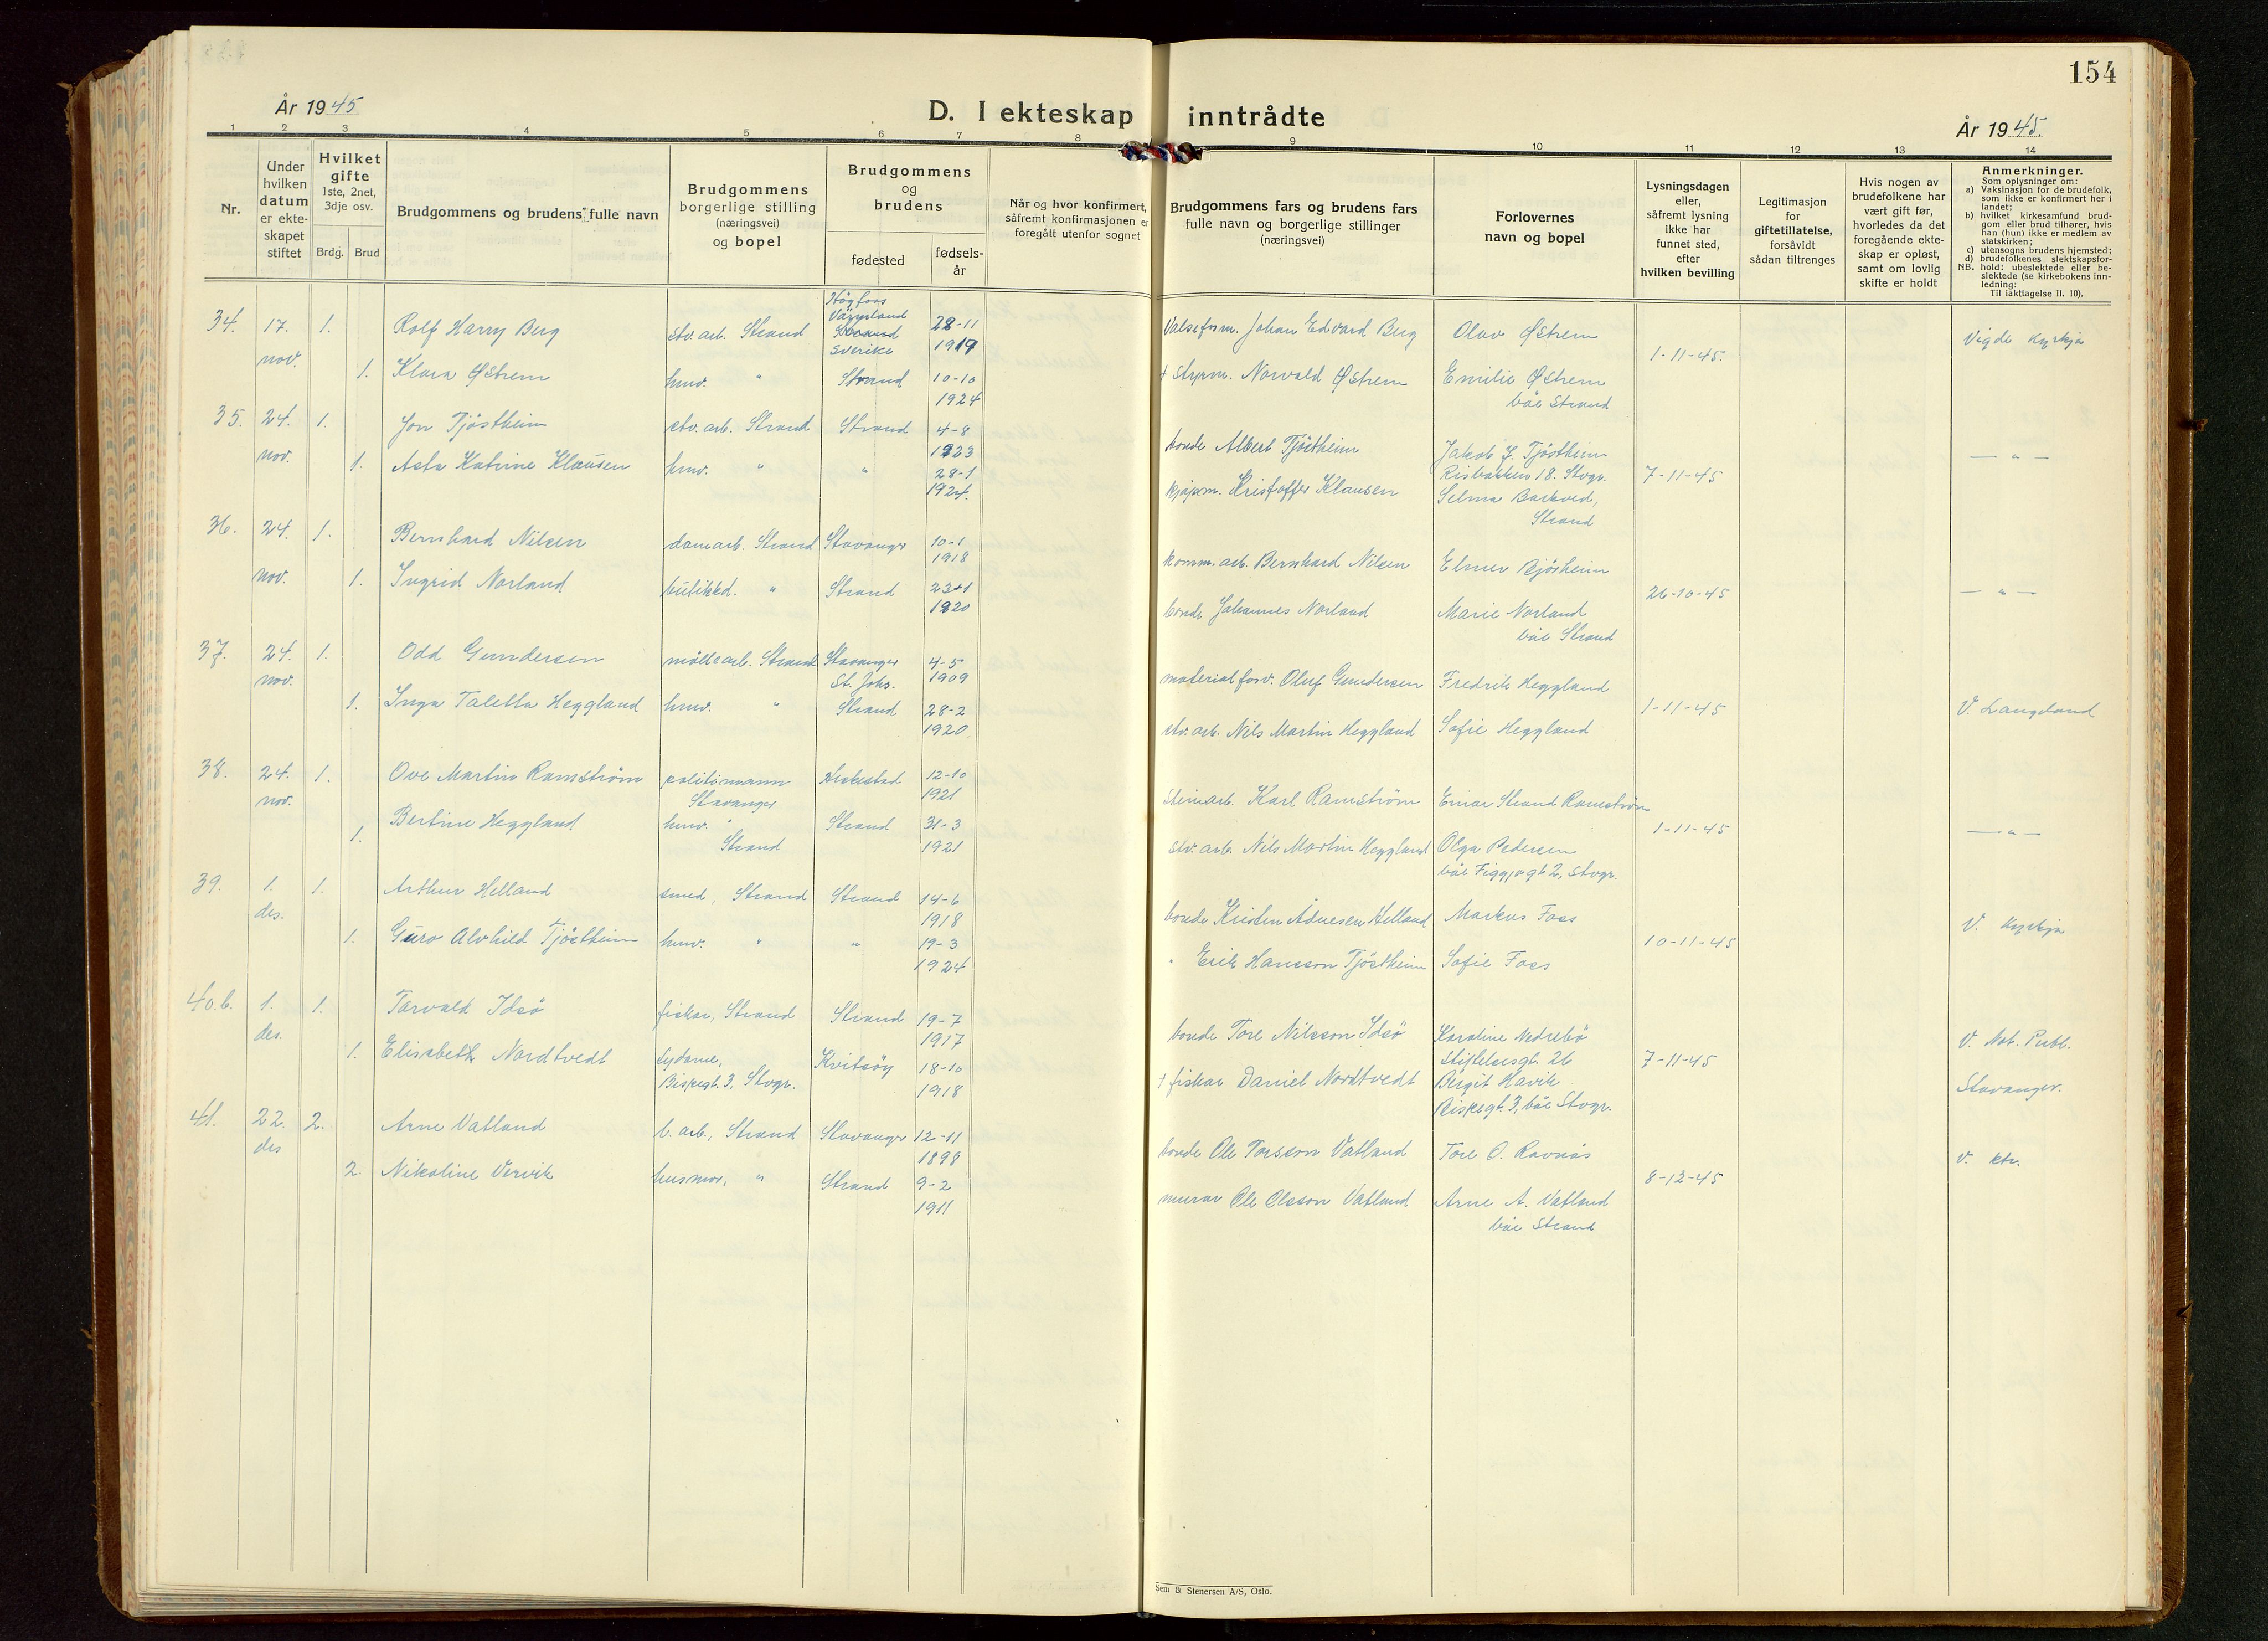 154
År 1945
D. I ekteskap inntrådte
År 1945.
1 2 3 4 5 6 7 8 9 10 11 12 13 14
Nr.
Under
hvilken
datum
er ekte-
skapet
stiftet
Hvilket
gifte
1ste, 2net,
3dje osv.
Brdg. Brud
Brudgommens og brudens fulle navn
Brudgommens
borgerlige stilling
(næringsvei)
og bopel
Brudgommens
og
brudens
fødested
fødsels-
år
Når og hvor konfirmert,
såfremt konfirmasjonen er
foregått utenfor sognet
Brudgommens fars og brudens fars
fulle navn og borgerlige stillinger
(næringsvei)
Forlovernes
navn og bopel
Lysningsdagen
eller,
såfremt lysning
ikke har
funnet sted,
efter
hvilken bevilling
Legitimasjon
for
giftetillatelse,
forsåvidt
sådan tiltrenges
Hvis nogen av
brudefolkene har
vært gift før,
hvorledes da det
foregående ekte-
skap er opløst,
samt om lovlig
skifte er holdt
Anmerkninger.
Som oplysninger om:
a) Vaksinasjon for de brudefolk,
som ikke er konfirmert her i
landet;
b) hvilket kirkesamfund brud-
gom eller brud tilhører, hvis
han (hun) ikke er medlem av
statskirken;
c) utensogns brudens hjemsted;
d) brudefolkenes slektskapsfor-
NB. hold: ubeslektede eller be-
slektede (se kirkebokens inn-
ledning:
Til iakttagelse II. 10).
34. 17. 1. Rolf Harry Berg stv. arb. Strand Högfors
Värmland
Sverike 28-11
1919 Valsefm. Johan Edvard Berg Olav Østrem Vigde kyrkja
nov. 1-11-45.
1. Klara Østrem hmv. " Strand 10-10
1924 + Styrm. Norvald Østrem Emilie Østrem
båe Strand
35. 24. 1. Jon Tjöstheim stv. arb. Strand Strand 4-8
1923 bonde Albert Tjöstheim Jakob J. Tjöstheim
Risbakken 18. Stvgr. 7-11-45 — " —
nov. 1. Asta Katrine Klausen hmv. " " 28-1
1924. kjøpm. Kristoffer Klausen Selma Barkved,
Strand
36. 24. 1. Bernhard Nilsen Strand Stavanger 10-1
1918 komm. arb. Bernhard Nilsen Elmer
26-10-45 — " —
nov. 1. Ingrid Norland butikkd. " Strand
1920 bonde Johannes Norland Marie Norland
båe Strand
37. 24. 1. Odd Gundersen möllearb. Strand Stavanger
St. Johs. 4-5
1909 materialforv. Oluf Gundersen Fredrik Heggland
nov. 1-11-45 V. Langeland
1. Inga Taletta Heggland hmv. " Strand 28-2
1920. stv. arb. Nils Martin Heggland Sofie Heggland
38. 24. 1. Ove Martin Ramström politimann
Stavanger 12-10
1921 Steinarb. Karl Ramström Einar Strand Ramström
nov. 1-11-45 — " —
1. Bertine Heggland hmv.
Strand Strand 31-3
1921 stv. arb. Nils Martin Heggland Olga Pedersen
båe Figgjogt 2, Stvgr.
39. 1. 1. Arthur Helland smed, Strand Strand 14-6
1918 bonde Kristen Helland Markus Foss V. kyrkja
des. 10-11-45
1. Guro Alvhild Tjöstheim hmv. " " 19-3
1924 " Erik Hansson Tjöstheim Sofie Foss
40.b. 1. 1. Torvald Idsö fiskar, Strand Strand 19-7
1917 bonde Tore Nilsson Idsö Karoline Nedrebö
Stiftelsesgt. 26 V. Not. Publ.
des. 7-11-45
1. Elisabeth Nordtvedt sydame,
Bispegt. 3, Stvgr. Kvitsöy 18-10
1918 + fiskar Daniel Nordtvedt Birgit Håvik
Bispegt. 3, båe Stvgr. Stavanger.
41. 22. 2. Arne Vatland b. arb., Strand Stavanger 12-11
1898 bonde Ole Torsson Vatland Tore O. Ravnås V. ktr.
des 8-12-45
2. Nikoline Vervik husmor, " Strand 9-2
1911 murar Ole Olsson Vatland Arne A. Vatland
båe Strand
Sem & Stenersen A/S, Oslo.